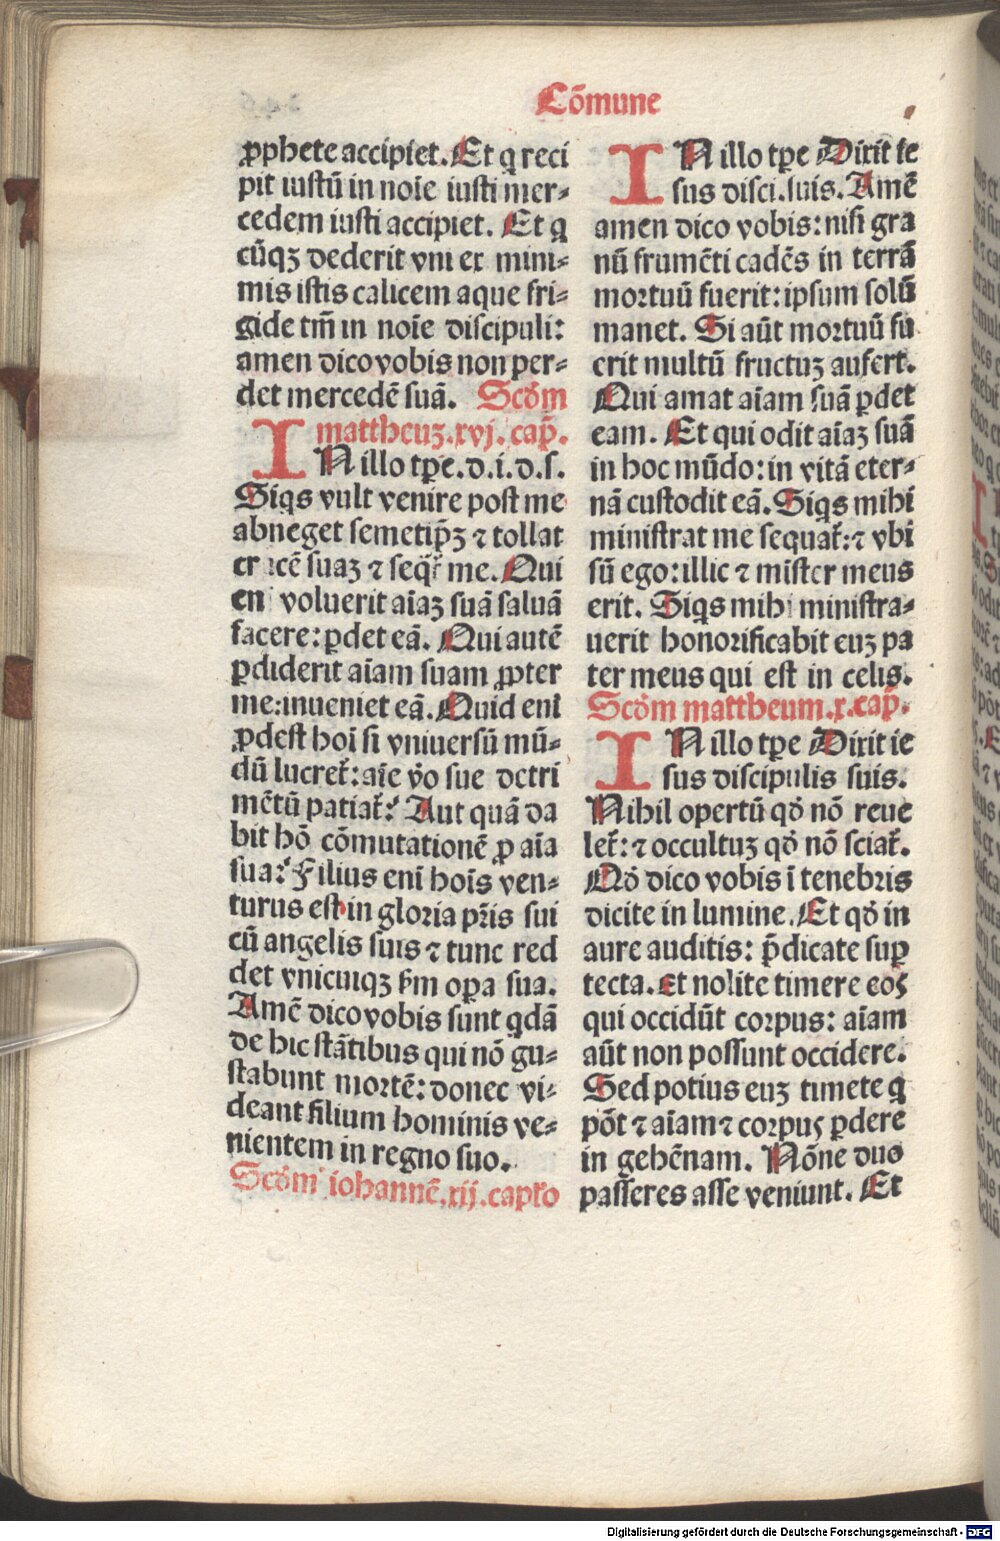 Cōmune
ꝓphete accipiet. Et q̲ reci
pit iustū in noīe iusti mer⸗
cedem iusti accipiet. Et q̲
cūqꝫ dederit vni ex mini⸗
mis istis calicem aque fri⸗
gide tm̄ in noīe discipuli:
amen dico vobis non per⸗
det mercedē suā. Scd̓m
mattheuꝫ. xvj. cap̄.
IN illo tꝑe. d. i. d. s.
Siq̲s vult venire post me
abneget semetip̄ꝫ ⁊ tollat
crucē suaꝫ ⁊ seq̄t᷑ me. Qui
eni voluerit aīaꝫ suā saluā
facere: ꝑdet eā. Qui autē
ꝑdiderit aīam suam ꝓpter
me: inueniet eā. Quid enī
ꝓdest hoī si vniuersū mū⸗
dū lucret᷑: aīe v̓o sue detri
mētū patiat᷑? Aut quā da
bit hō cōmutationē ꝓ aīa
sua? Filius enī hoīs ven⸗
turus est in gloria pr̄is sui
cū angelis suis ⁊ tunc red
det vnicuiqꝫ ẜm oꝑa sua.
Amē dico vobis sunt q̲dā
de hic stātibus qui nō gu⸗
stabunt mortē: donec vi⸗
deant filium hominis ve⸗
nientem in regno suo.
Scd̓m iohannē. xij. capl̓o
IN illo tꝑe Dixit ie
sus disci. suis. Amē
amen dico vobis: nisi gra
nū frumēti cadēs in terrā
mortuū fuerit: ipsum solū
manet. Si aūt mortuū fu
erit multū fructuꝫ aufert.
Qui amat aīam suā ꝑdet
eam. Et qui odit aīaꝫ suā
in hoc mūdo: in vitā eter⸗
nā custodit eā. Siq̲s mihī
ministrat me sequat᷑: ⁊ vbi
sū ego: illic ⁊ mīster meus
erit. Siq̲s mihi ministra⸗
uerit honorificabit euꝫ pa
ter meus qui est in celis.
Scd̓m mattheum. x. cap̄.
IN illo tꝑe Dixit ie
sus discipulis suis.
Nihil opertū qd̓ nō reue
let᷑: ⁊ occultuꝫ qd̓ nō sciat᷑.
Qd̓ dico vobis ī tenebris
dicite in lumine. Et qd̓ in
aure auditis: p̄dicate suꝑ
tecta. Et nolite timere eos
qui occidūt corpus: aīam
aūt non possunt occidere.
Sed potius euꝫ timete q̲
pōt ⁊ aīam ⁊ corpus ꝑdere
in gehēnam. Nōne duo
passeres asse veniunt. Et
Digitalisierung gefördert durch die Deutsche Forschungsgemeinschaft - DFG